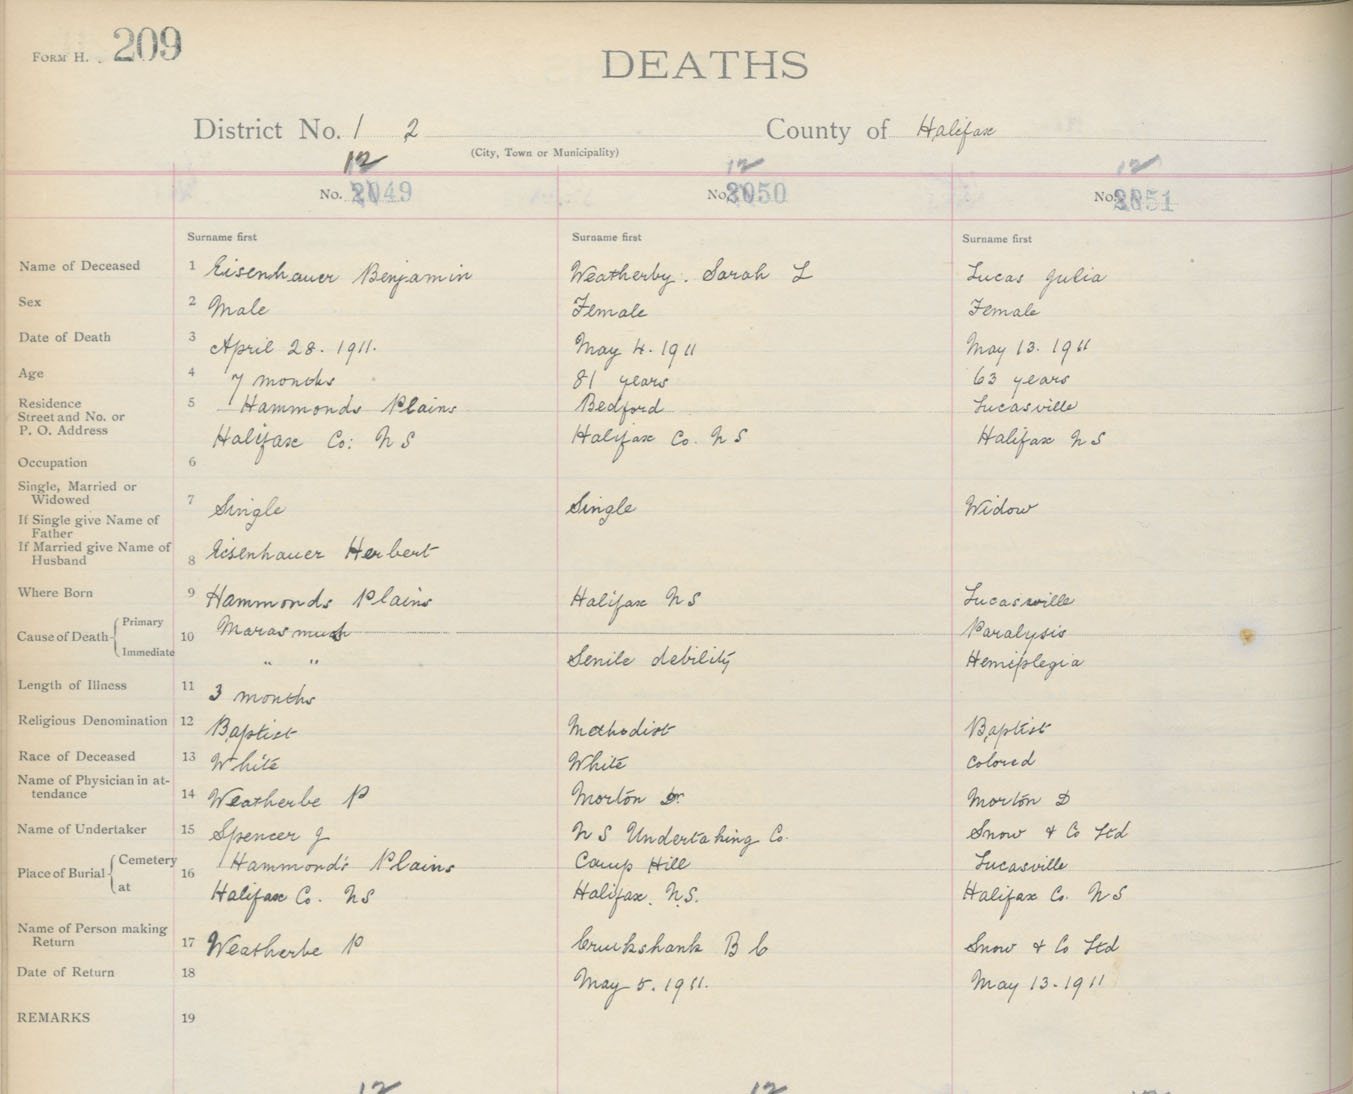 FORM H. 209
DEATHS
District No. 1 2 County of Halifax
(City, Town or Municipality)
12 12 12
No. 2049 No. 2050 No. 2051
Surname first Surname first Surname first
Name of Deceased 1 Eisenhauer Benjamin Weatherby. Sarah L Lucas Julia
Sex 2 Male Female Female
Date of Death 3 April 28. 1911. May 4. 1911 May 13. 1911
Age 4 7 months 81 years 63 years
Residence 5 Hammonds Plains Bedford Lucasville
Street and No. or
P. O. Address Halifax Co: N S Halifax Co. N S Halifax N S
Occupation 6
Single, Married or
Widowed 7 Single Single Widow
If Single give Name of
Father
If Married give Name of
Husband 8 Eisenhauer Herbert
Where Born 9 Hammonds Plains Halifax N S Lucasville
Cause of Death 10 Primary Marasmus Paralysis
Immediate " " Senile debility Hemiplegia
Length of Illness 11 3 months
Religious Denomination 12 Baptist Methodist Baptist
Race of Deceased 13 White White Colored
Name of Physician in at-
tendance 14 Weatherbe P Morton Dr. Morton D
Name of Undertaker 15 Spencer J N S Undertaking Co. Snow & Co Ltd
Place of Burial 16 Cemetery Hammond's Plains Camp Hill Lucasville
at Halifax Co. N S Halifax. N.S. Halifax Co. N S
Name of Person making
Return 17 Weatherbe P Cruikshank B C Snow & Co Ltd
Date of Return 18 May 5. 1911. May 13. 1911
REMARKS 19
12 12